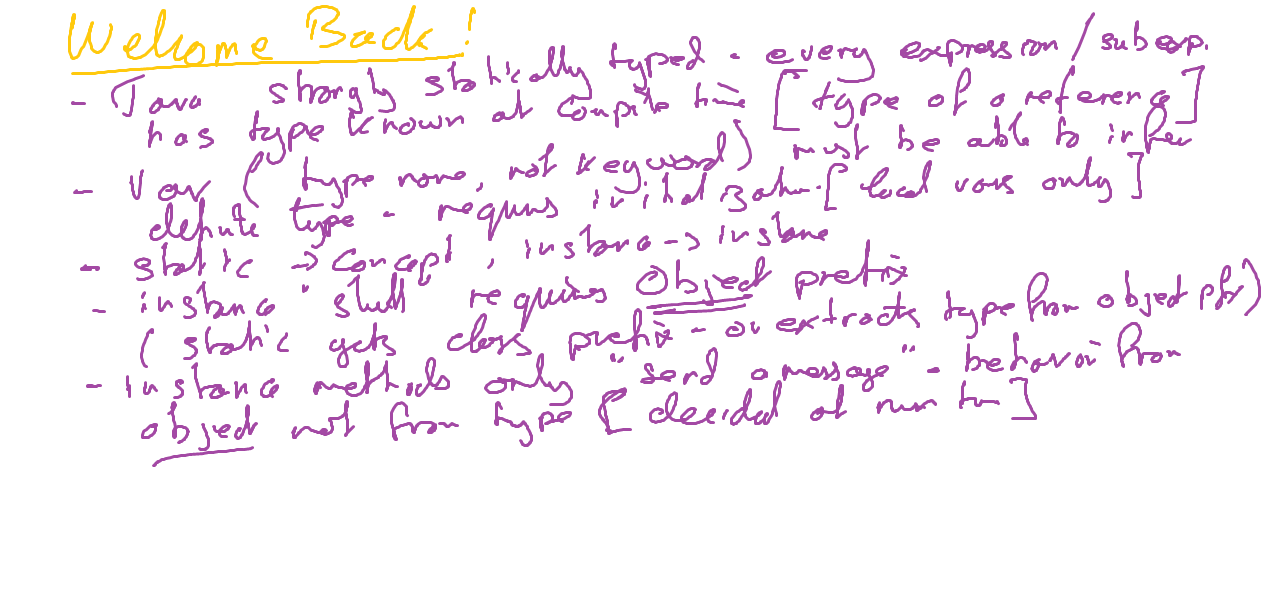 Welcome Back!
- Java strongly statically typed - every expression / subexp.
has type known at compile time [type of a reference]
- var (type name, not keyword) must be able to infer
definite type - requires initialization. [local vars only]
- static -> concept, instance -> instance
- instance "stuff" requires Object prefix
(static gets class prefix - or extracts type from object pfx)
- instance methods only "send a message" - behavior from
object not from type [decided at run time]